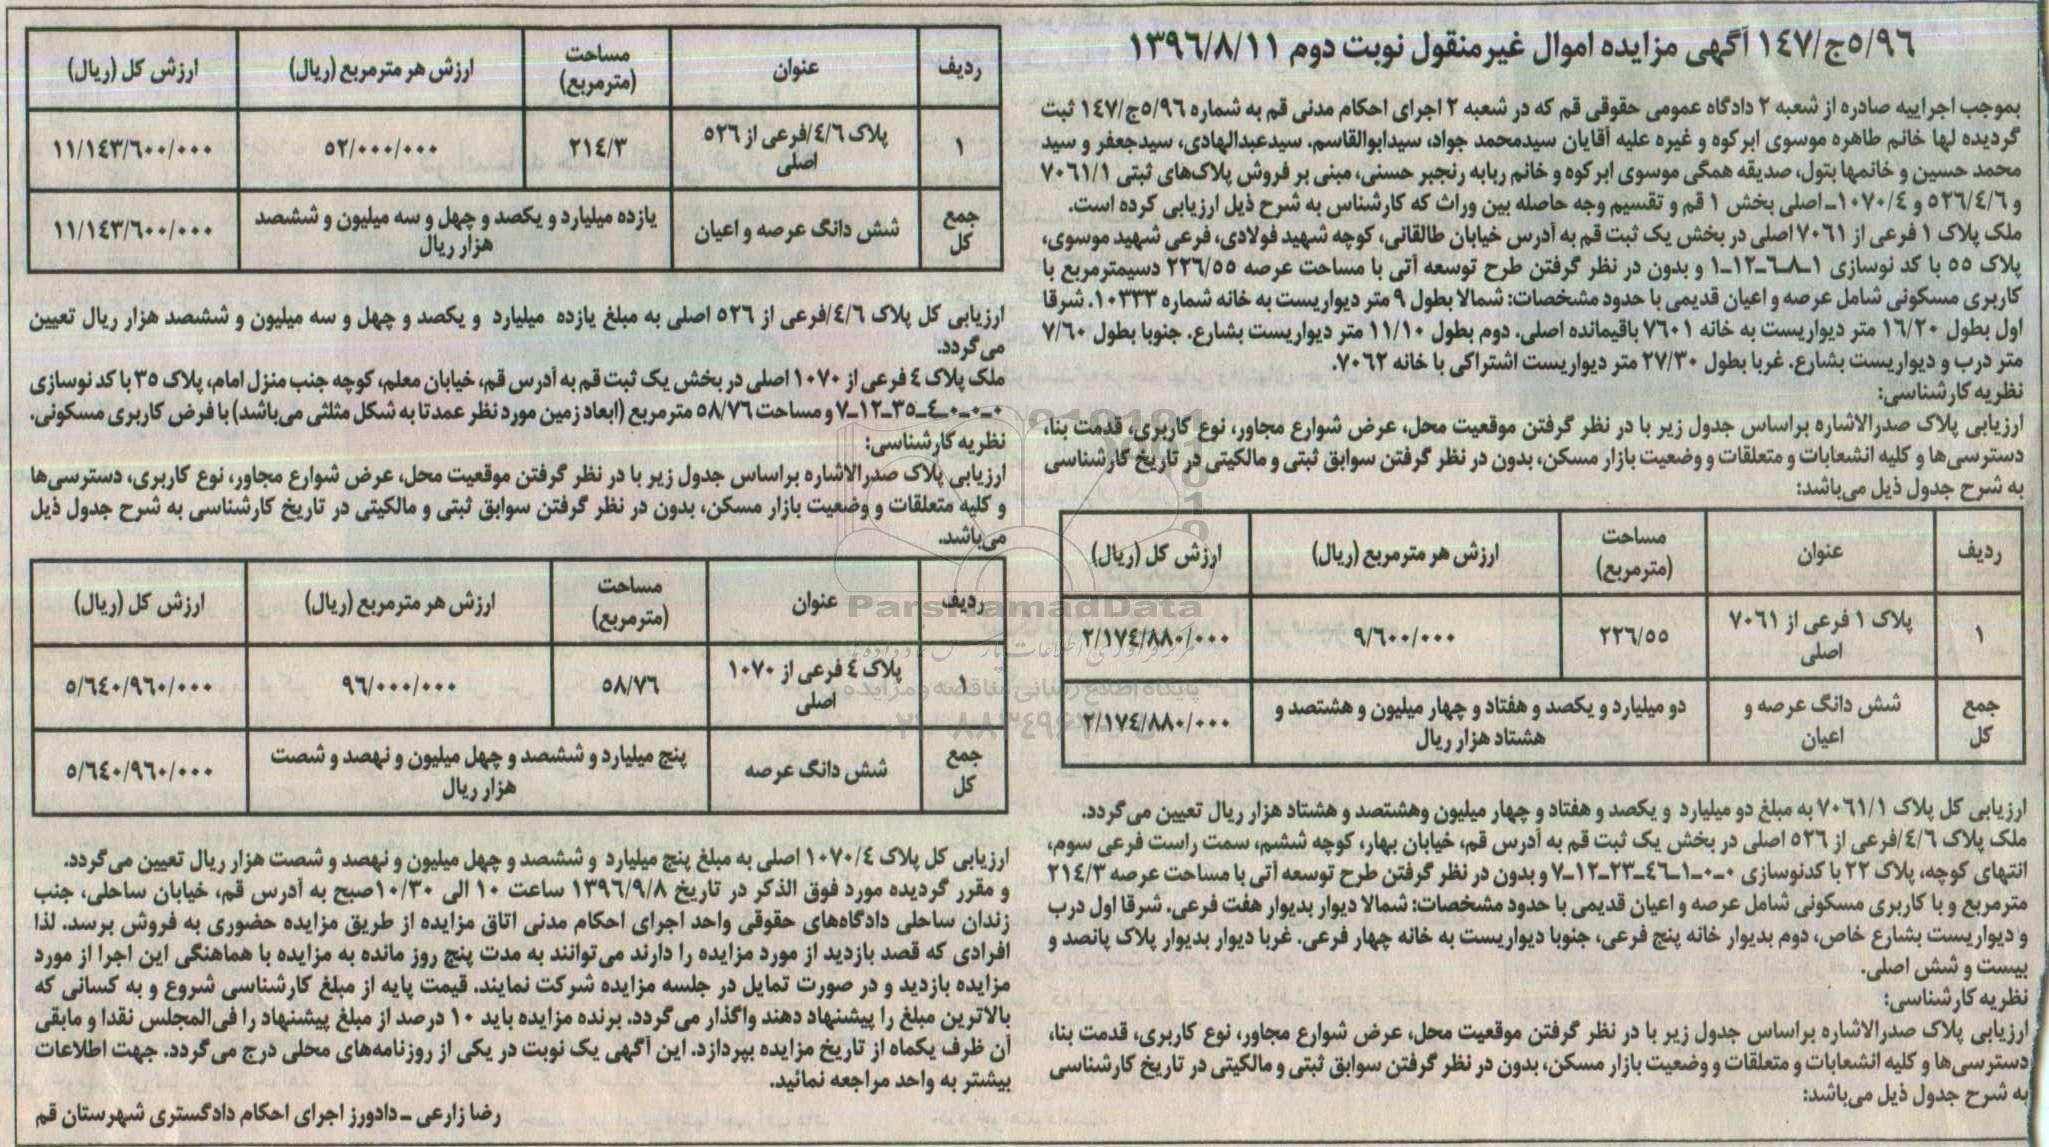 ۵/۹۶ج/۱۴۷ آگهی مزایده اموال غیرمنقول نوبت دوم ۱۳۹۶/۸/۱۱
بموجب اجراییه صادره از شعبه ۲ دادگاه عمومی حقوقی قم که در شعبه ۲ اجرای احکام مدنی قم به شماره ۵/۹۶ج/۱۴۷ ثبت
گردیده لها خانم طاهره موسوی ابرکوه و غیره علیه آقایان سیدمحمد جواد، سیدابوالقاسم. سیدعبدالهادی، سیدجعفر و سید
محمد حسین و خانمها بتول، صدیقه همگی موسوی ابرکوه و خانم ربابه رنجبر حسنی، مبنی بر فروش پلاک‌های ثبتی ۷۰۶۱/۱
و ۵۲۶/۴/۶ و ۱۰۷۰/۴ـ اصلی بخش ۱ قم و تقسیم وجه حاصله بین وراث که کارشناس به شرح ذیل ارزیابی کرده است.
ملک پلاک ۱ فرعی از ۷۰۶۱ اصلی در بخش یک ثبت قم به آدرس خیابان طالقانی، کوچه شهید فولادی، فرعی شهید موسوی،
پلاک ۵۵ با کد نوسازی ۱ـ۸ـ۶ـ۱۲ـ۱ و بدون در نظر گرفتن طرح توسعه آتی با مساحت عرصه ۲۲۶/۵۵ دسیمترمربع با
کاربری مسکونی شامل عرصه و اعیان قدیمی با حدود مشخصات: شمالا بطول ۹ متر دیواریست به خانه شماره ۱۰۳۳۳. شرقا
اول بطول ۱۶/۲۰ متر دیواریست به خانه ۷۶۰۱ باقیمانده اصلی. دوم بطول ۱۱/۱۰ متر دیواریست بشارع. جنوبا بطول ۷/۶۰
متر درب و دیواریست بشارع. غربا بطول ۲۷/۳۰ متر دیواریست اشتراکی با خانه ۷۰۶۲.
نظریه کارشناسی:
ارزیابی پلاک صدرالاشاره براساس جدول زیر با در نظر گرفتن موقعیت محل، عرض شوارع مجاور، نوع کاربری، قدمت بنا،
دسترسی‌ها و کلیه انشعابات و متعلقات و وضعیت بازار مسکن، بدون در نظر گرفتن سوابق ثبتی و مالکیتی در تاریخ کارشناسی
به شرح جدول ذیل می‌باشد:
ردیف عنوان مساحت (مترمربع) ارزش هر مترمربع (ریال) ارزش کل (ریال)
۱ پلاک ۱ فرعی از ۷۰۶۱ اصلی ۲۲۶/۵۵ ۹/۶۰۰/۰۰۰ ۲/۱۷۴/۸۸۰/۰۰۰
جمع کل شش دانگ عرصه و اعیان دو میلیارد و یکصد و هفتاد و چهار میلیون و هشتصد و هشتاد هزار ریال ۲/۱۷۴/۸۸۰/۰۰۰
ارزیابی کل پلاک ۷۰۶۱/۱ به مبلغ دو میلیارد و یکصد و هفتاد و چهار میلیون وهشتصد و هشتاد هزار ریال تعیین می‌گردد.
ملک پلاک ۴/۶/فرعی از ۵۲۶ اصلی در بخش یک ثبت قم به آدرس قم، خیابان بهار، کوچه ششم، سمت راست فرعی سوم،
انتهای کوچه، پلاک ۲۲ با کدنوسازی ۰ـ۰ـ۱ـ۴۶ـ۲۳ـ۱۲ـ۷ و بدون در نظر گرفتن طرح توسعه آتی با مساحت عرصه ۲۱۴/۳
مترمربع و با کاربری مسکونی شامل عرصه و اعیان قدیمی با حدود مشخصات: شمالا دیوار بدیوار هفت فرعی. شرقا اول درب
و دیواریست بشارع خاص، دوم بدیوار خانه پنج فرعی، جنوبا دیواریست به خانه چهار فرعی. غربا دیوار بدیوار پلاک پانصد و
بیست و شش اصلی.
نظریه کارشناسی:
ارزیابی پلاک صدرالاشاره براساس جدول زیر با در نظر گرفتن موقعیت محل، عرض شوارع مجاور، نوع کاربری، قدمت بنا،
دسترسی‌ها و کلیه انشعابات و متعلقات و وضعیت بازار مسکن، بدون در نظر گرفتن سوابق ثبتی و مالکیتی در تاریخ کارشناسی
به شرح جدول ذیل می‌باشد:
ردیف عنوان مساحت (مترمربع) ارزش هر مترمربع (ریال) ارزش کل (ریال)
۱ پلاک ۴/۶/فرعی از ۵۲۶ اصلی ۲۱۴/۳ ۵۲/۰۰۰/۰۰۰ ۱۱/۱۴۳/۶۰۰/۰۰۰
جمع کل شش دانگ عرصه و اعیان یازده میلیارد و یکصد و چهل و سه میلیون و ششصد هزار ریال ۱۱/۱۴۳/۶۰۰/۰۰۰
ارزیابی کل پلاک ۴/۶/فرعی از ۵۲۶ اصلی به مبلغ یازده میلیارد و یکصد و چهل و سه میلیون و ششصد هزار ریال تعیین
می‌گردد.
ملک پلاک ۴ فرعی از ۱۰۷۰ اصلی در بخش یک ثبت قم به آدرس قم، خیابان معلم، کوچه جنب منزل امام، پلاک ۳۵ با کد نوسازی
۰ـ۰ـ۰ـ۴ـ۳۵ـ۱۲ـ۷ و مساحت ۵۸/۷۶ مترمربع (ابعاد زمین مورد نظر عمدتا به شکل مثلثی می‌باشد) با فرض کاربری مسکونی.
نظریه کارشناسی:
ارزیابی پلاک صدرالاشاره براساس جدول زیر با در نظر گرفتن موقعیت محل، عرض شوارع مجاور، نوع کاربری، دسترسی‌ها
و کلیه متعلقات و وضعیت بازار مسکن، بدون در نظر گرفتن سوابق ثبتی و مالکیتی در تاریخ کارشناسی به شرح جدول ذیل
می‌باشد.
ردیف عنوان مساحت (مترمربع) ارزش هر مترمربع (ریال) ارزش کل (ریال)
۱ پلاک ۴ فرعی از ۱۰۷۰ اصلی ۵۸/۷۶ ۹۶/۰۰۰/۰۰۰ ۵/۶۴۰/۹۶۰/۰۰۰
جمع کل شش دانگ عرصه پنج میلیارد و ششصد و چهل میلیون و نهصد و شصت هزار ریال ۵/۶۴۰/۹۶۰/۰۰۰
ارزیابی کل پلاک ۱۰۷۰/۴ اصلی به مبلغ پنج میلیارد و ششصد و چهل میلیون و نهصد و شصت هزار ریال تعیین می‌گردد.
و مقرر گردیده مورد فوق الذکر در تاریخ ۱۳۹۶/۹/۸ ساعت ۱۰ الی ۱۰/۳۰صبح به آدرس قم، خیابان ساحلی، جنب
زندان ساحلی دادگاه‌های حقوقی واحد اجرای احکام مدنی اتاق مزایده از طریق مزایده حضوری به فروش برسد. لذا
افرادی که قصد بازدید از مورد مزایده را دارند می‌توانند به مدت پنج روز مانده به مزایده با هماهنگی این اجرا از مورد
مزایده بازدید و در صورت تمایل در جلسه مزایده شرکت نمایند. قیمت پایه از مبلغ کارشناسی شروع و به کسانی که
بالاترین مبلغ را پیشنهاد دهند واگذار می‌گردد. برنده مزایده باید ۱۰ درصد از مبلغ پیشنهاد را فی‌المجلس نقدا و مابقی
آن ظرف یکماه از تاریخ مزایده بپردازد. این آگهی یک نوبت در یکی از روزنامه‌های محلی درج می‌گردد. جهت اطلاعات
بیشتر به واحد مراجعه نمائید.
رضا زارعی ـ دادورز اجرای احکام دادگستری شهرستان قم
ParsNamadData
پایگاه اطلاع رسانی مناقصه و مزایده